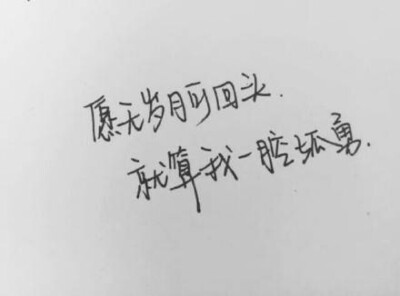 愿无岁月可回头.
就算我一腔孤勇.